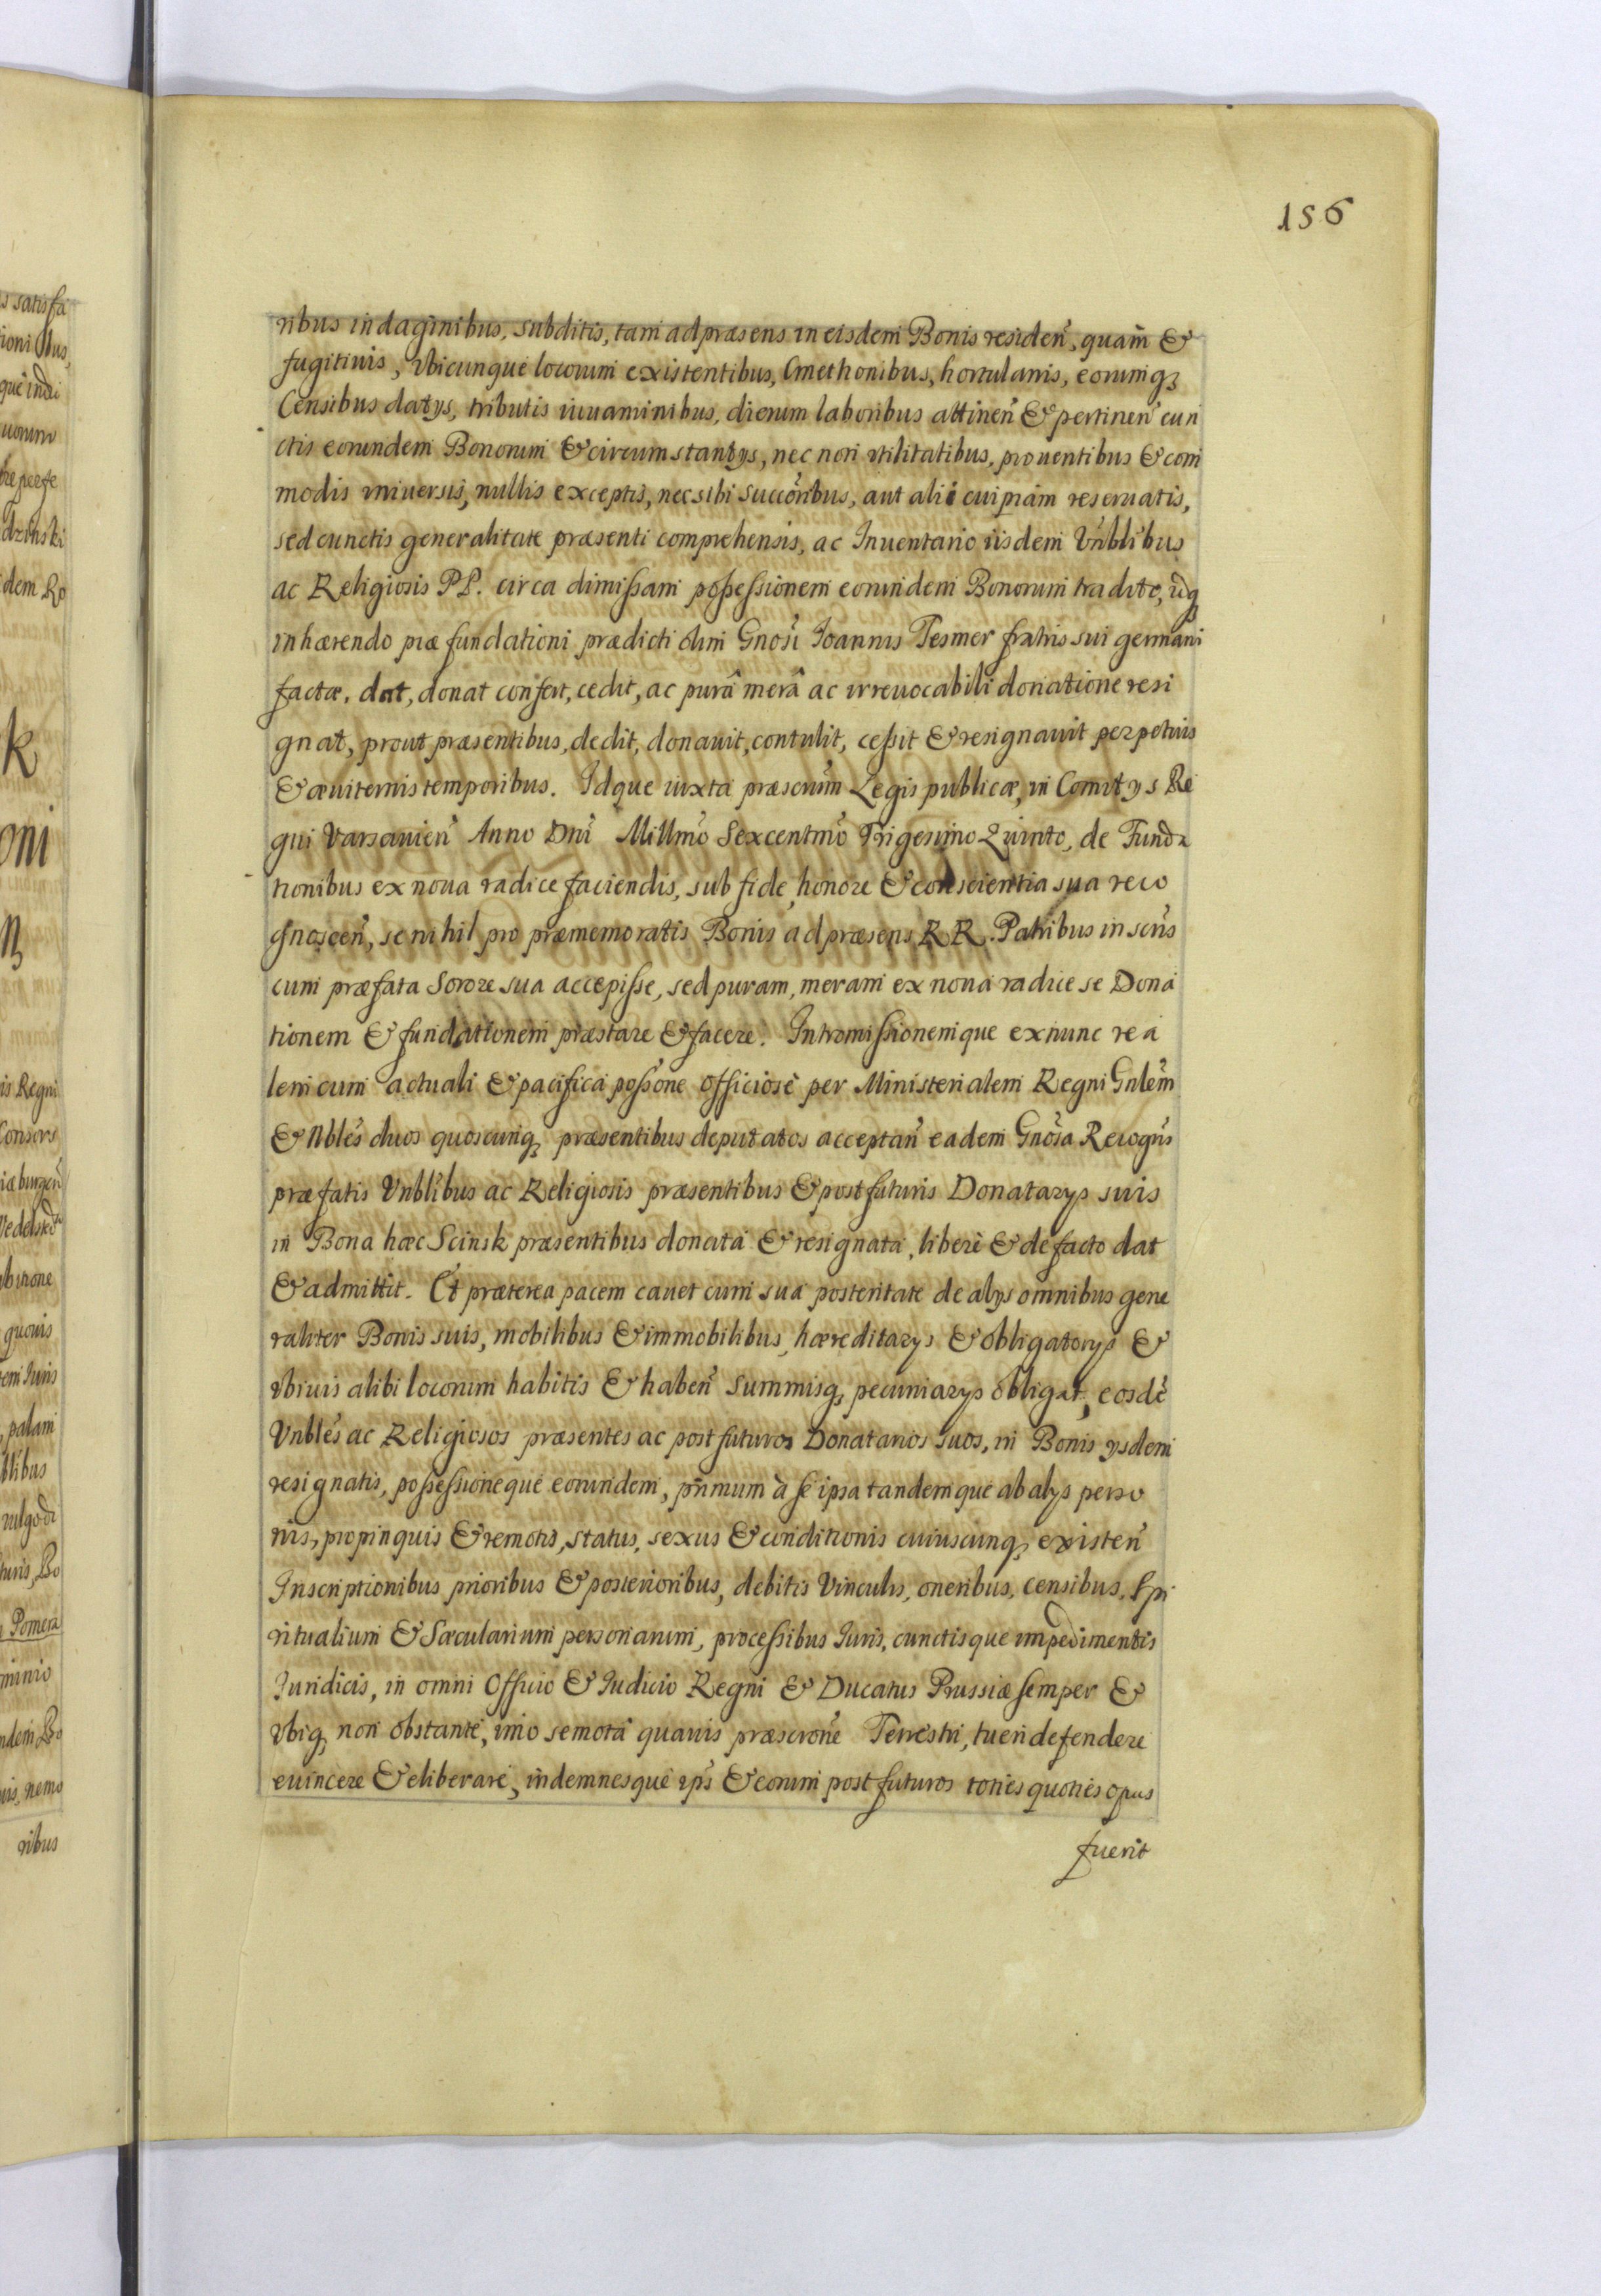 156
ribus indaginibus, subditis, tam ad præsens in eisdem Bonis residen̄, quam &
fugitiuis, Vbicunque locorum existentibus, Cmethonibus, hortulanis, eorumq,
Censibus datijs, tributis iuuaminibus, dierum laboribus attinen̄ & pertinen̄ cun
ctis eorundem Bonorum & circumstantijs, nec non vtilitatibus, prouentibus & com
modis vniuersis, nullis exceptis, nec sibi succōribus, aut alij cuipiam reseruatis,
sed cunctis generalitate præsenti comprehensis, ac Inuentario iisdem Vnblibus
ac Religiosis PP. circa dimissam possessionem eorundem Bonorum tradito, idq
inhærendo piæ fundationi prædicti olim Gnōsi Ioannis Tesmer fratris sui germani
factæ, dat, donat confert, cedit, ac purâ merâ ac irreuocabili donatione resi
gnat, prout præsentibus, dedit, donauit, contulit, cessit & resignauit perpetuis
& æuiternis temporibus. Idque iuxta præscrūm Legis publicæ, in Comitijs Re
gni Varsauien̄ Anno Dn̄i Millmō Sexcentmō Trigesimo Quinto, de Funda
tionibus ex noua radice faciendis, sub fide, honore & conscientia sua reco
gnoscen̄, se nihil pro præmemoratis Bonis ad præsens RR. Patribus inscrīs
cum præfata Sorore sua accepisse, sed puram, meram ex noua radice se Dona
tionem & fundationem præstare & facere. Intromissionemque exnunc rea
lem cum actuali & pacifica possōne officiosè per Ministerialem Regni Gnlēm
& Nblēs duos quoscunq, præsentibus deputatos acceptan̄ eadem Gnōsa Recogn̄s
præfatis Vnblībus ac Religiosis præsentibus & post futuris Donatarijs suis
in Bona hæc Scinsk præsentibus donata & resignata, liberè & de facto dat
& admittit. Et præterea pacem cauet cum sua posteritate de alijs omnibus gene
raliter Bonis suis, mobilibus & immobilibus, hæreditarijs & obligatorijs &
vbiuis alibi locorum habitis & haben̄ summisq, pecuniarijs obligat, eosdē
Vnblēs ac Religiosos præsentes ac post futuros Donatarios suos, in Bonis ijsdem
resignatis, possessioneque eorundem, primum à se ipsa tandemque ab alijs perso
nis, propinquis & remotis, status, sexus & conditionis cuiuscunq, existen̄
Inscriptionibus prioribus & posterioribus, debitis Vinculis, oneribus, censibus, Spi
ritualium & Sæcularium personarum, processibus Iuris, cunctisque impedimentis
Iuridicis, in omni Officio & Iudicio Regni & Ducatus Prussiæ semper &
vbiq, non obstante, imo semotâ quauis præscrōne Terrestri, tueri defendere
euincere & eliberare, indemnesque ip̄s & eorum post futuros toties quoties opus
fuerit